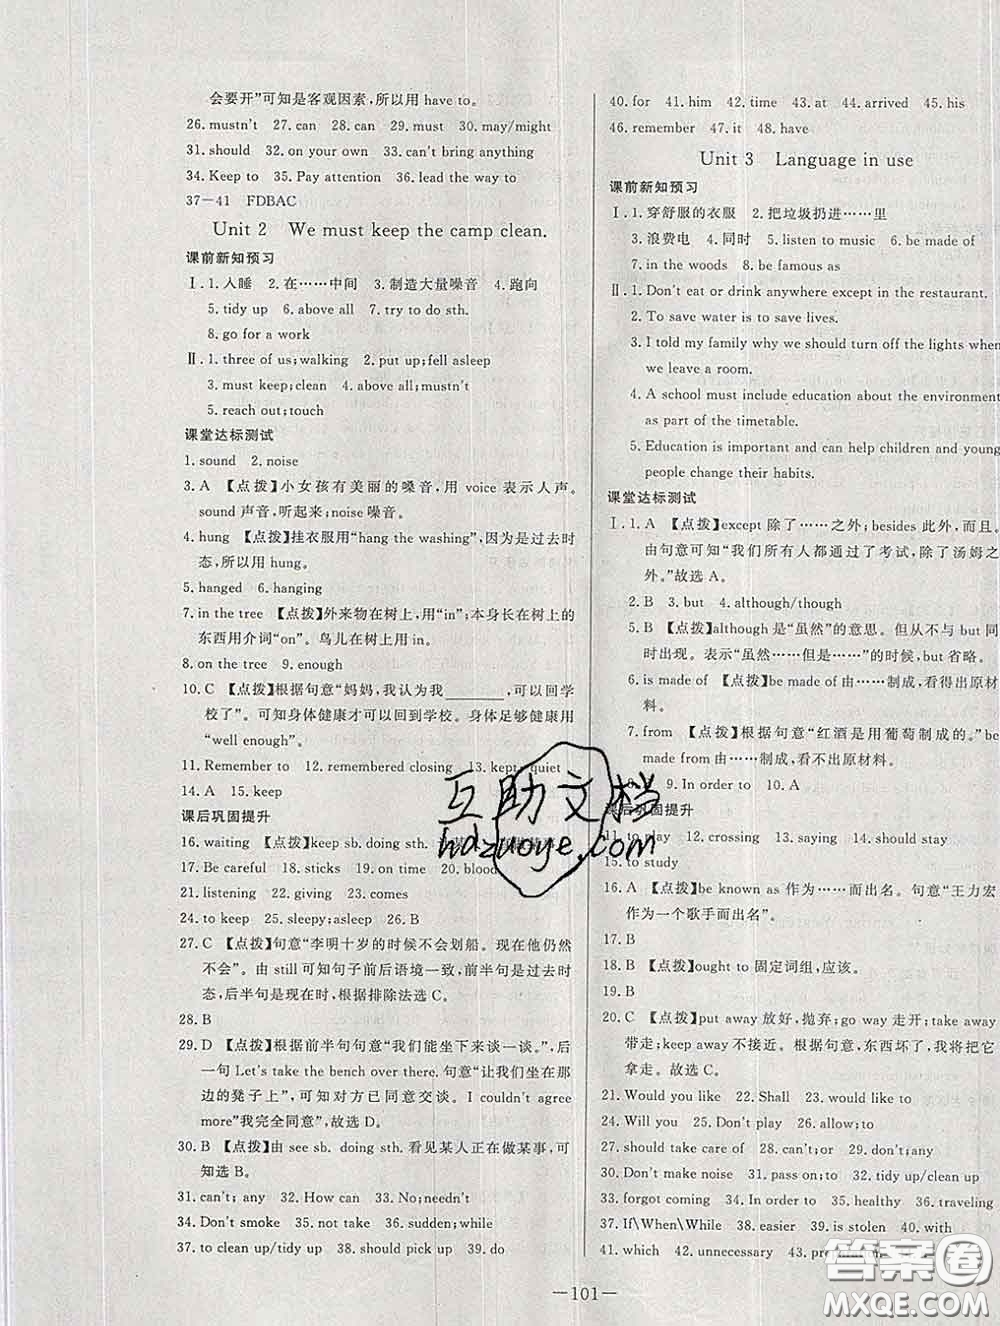 会要开”可知是客观因素,所以用 have to。
26. mustn't 27. can 28. can 29. must 30. may/might
31. should 32. on your own 33. can't bring anything
34. Keep to 35. Pay attention 36. lead the way to
37—41 FDBAC
Unit 2 We must keep the camp clean.
课前新知预习
Ⅰ. 1. 入睡 2. 在……中间 3. 制造大量噪音 4. 跑向
5. tidy up 6. above all 7. try to do sth.
8. go for a work
Ⅱ. 1. three of us;walking 2. put up;fell asleep
3. must keep;clean 4. above all;mustn't
5. reach out;touch
课堂达标测试
1. sound 2. noise
3. A 【点拨】小女孩有美丽的嗓音,用 voice 表示人声。
sound 声音,听起来;noise 噪音。
4. hung 【点拨】挂衣服用“hang the washing”,因为是过去时
态,所以用 hung。
5. hanged
7. in the tree 【点拨】外来物在树上,用“in”;本身长在树上的
东西用介词“on”。鸟儿在树上用 in。
8. on the tree 9. enough
10. C 【点拨】根据句意“妈妈,我认为我________,可以回学
校了”。可知身体健康才可以回到学校。身体足够健康用
“well enough”。
11. Remember to 12. remembered closing 13. kept quiet
14. A 15. keep
课后巩固提升
16. waiting 【点拨】keep sb. doing sth.
17. Be careful 18. sticks 19. on time 20. blood
21. listening 22. giving 23. comes
24. to keep 25. sleepy;asleep 26. B
27. C 【点拨】句意“李明十岁的时候不会划船。现在他仍然
不会”。由 still 可知句子前后语境一致,前半句是过去时
态,后半句是现在时,根据排除法选 C。
28. B
29. D 【点拨】根据前半句句意“我们能坐下来谈一谈。”,后
一句 Let's take the bench over there. 句意“让我们坐在那
边的凳子上”,可知对方已同意交谈。I couldn't agree
more“我完全同意”,故选 D。
30. B 【点拨】由 see sb. doing sth. 看见某人正在做某事,可
知选 B。
31. can't; any 32. How can 33. No;needn't
34. Don't smoke 35. not take 36. sudden;while
37. to clean up/tidy up 38. should pick up 39. do
40. for 41. him 42. time 43. at 44. arrived 45. his
46. remember 47. it 48. have
Unit 3 Language in use
课前新知预习
Ⅰ. 1. 穿舒服的衣服 2. 把垃圾扔进……里
3. 浪费电 4. 同时 5. listen to music 6. be made of
7. in the woods 8. be famous as
Ⅱ. 1. Don't eat or drink anywhere except in the restaurant.
2. To save water is to save lives.
3. I told my family why we should turn off the lights when
we leave a room.
4. A school must include education about the environment
as part of the timetable.
5. Education is important and can help children and young
people change their habits.
课堂达标测试
Ⅰ. 1. A 【点拨】except 除了……之外;besides 此外,而且。
由句意可知“我们所有人都通过了考试,除了汤姆之
外。”故选 A。
2. B 3. but 4. although/though
5. B 【点拨】although 是“虽然”的意思。但从不与 but 同
时出现。表示“虽然……但是……”的时候,but 省略。
6. is made of 【点拨】be made of 由……制成,看得出原材
料。
7. from 【点拨】根据句意“红酒是用葡萄制成的。”be
made from 由……制成,看不出原材料。
8. B 9. In order to 10. A
课后巩固提升
11. to play 12. crossing 13. saying 14. should stay
15. to study
16. A 【点拨】be known as 作为……而出名。句意“王力宏
作为一个歌手而出名”。
17. B
18. B 【点拨】ought to 固定词组,应该。
19. B
20. C 【点拨】put away 放好,抛弃;go away 走开;take away
带走;keep away 不接近。根据句意,东西坏了,我将把它
拿走。故选 C。
21. Would you like 22. Shall 23. would like to
24. Will you 25. Don't play 26. allow;to
27. should take care of 28. can't;or 29. don't;can
30. Don't make noise 31. pass on 32. tidy up/clean up
33. forgot coming 34. In order to 35. healthy 36. traveling
37. If\When\While 38. easier 39. is stolen 40. with
41. which 42. unnecessary 43.
—101—
互助文档
hdzuoye.com
答案圈
MXQE.COM